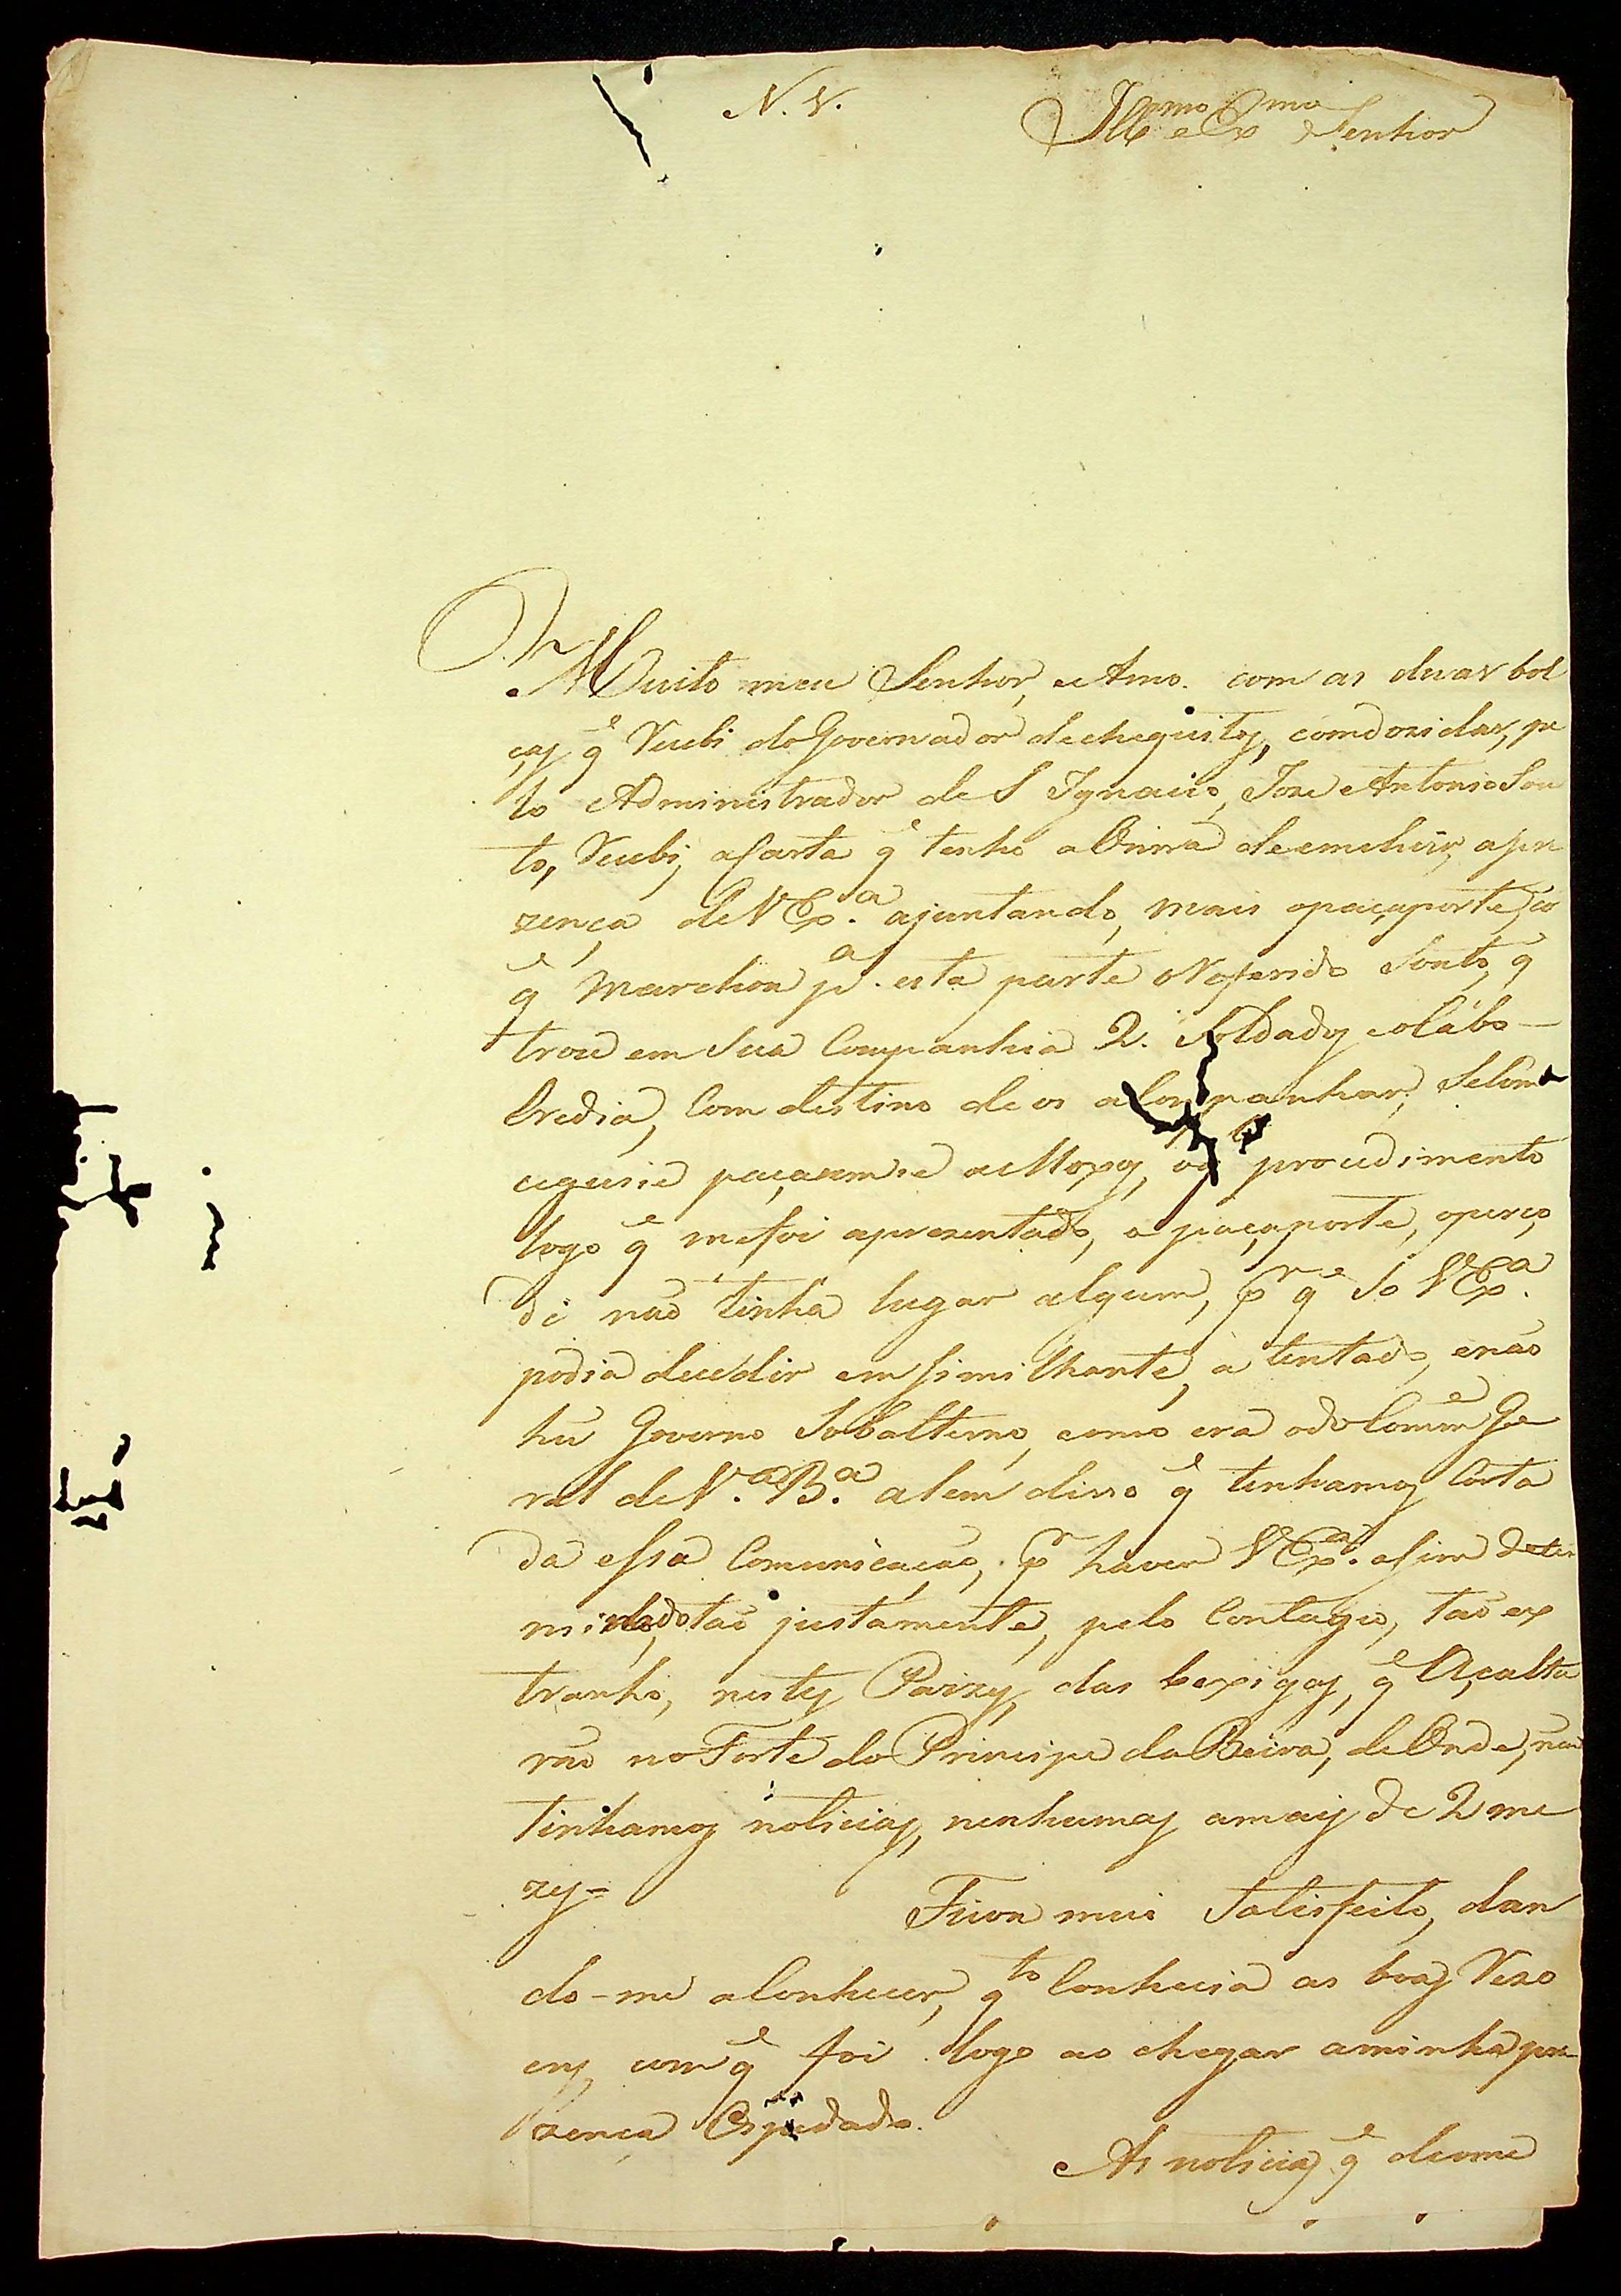 N. V.
Ill.mo e Ex.mo Senhor
Muito meu Senhor, e Amo. com as duas bol
ças q̃ Recebi do Governador de chequitos, comdozidas, pe
lo Administrador de S Ignacio, Joze Antonio Sou
to, Recebi, a Carta q̃ tenho a Onrra de emcluir, a pre
zença de V Ex.ª ajuntando, mais o paçaporte, co
q̃ Marchou p.ª esta parte o Referido Souto, q̃
trou em Sua Companhia 2. Soldados e o Cabo
Oredia, Com destino de os acompanhar,
paçarem se a Moxos, procedimento
logo q̃ me foi aprezentado, o paçaporte, operço
di não tinha lugar algum, pr q̃ só V Ex.ª
podia decedir em similhante, a tentado, e não
hũ Governo Sobalterno, como era o do Com.e Ge
ral de V.ª B.ª alem disso q̃ tenhamos Corta
da essa Comunicacão, pr haver V Ex.ª asim deter
minado, tão justamente, pelo Contagio, tão ex
tranho, nestes Paizes, das bexigas, q̃ Açalta
rão no Forte do Principe da Beira, de Onde, não
tinhamos noticias, nenhumas a mais de 2 me
zes =
Ficou mui Satisfeito, dan
do-me a Conhecer, q.to Conhecia as boas Rezo
ens, com q̃ foi logo ao chegar a minha pre
zença Ospedado.
As noticias q̃ deome